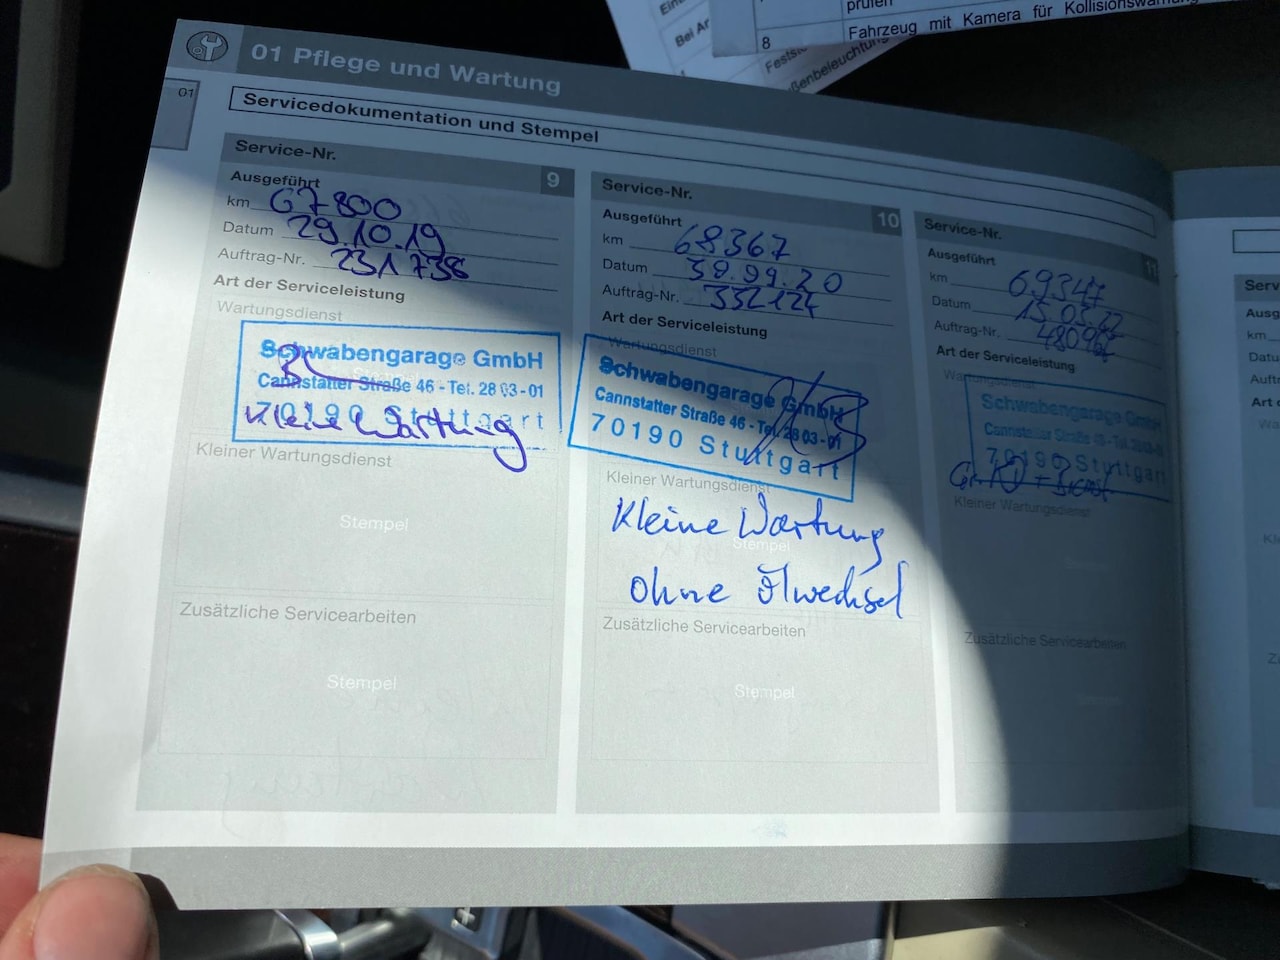 Ein
Bei Ar
prüfen
8 Fahrzeug mit Kamera für Kollisionswarnung
Festst
ßenbeleuchtung
01 Pflege und Wartung
01
Servicedokumentation und Stempel
Service-Nr. 9
Ausgeführt
km 67800
Datum 29.10.19
Auftrag-Nr. 231738
Art der Serviceleistung
Wartungsdienst
Schwabengarage GmbH
Cannstatter Straße 46 - Tel. 28 03 - 01
70190 Stuttgart
Kleine Wartung
Kleiner Wartungsdienst
Stempel
Zusätzliche Servicearbeiten
Stempel
Service-Nr. 10
Ausgeführt
km 68367
Datum
Auftrag-Nr. 332124
Art der Serviceleistung
Wartungsdienst
Schwabengarage GmbH
Cannstatter Straße 46 - Tel. 28 03 - 01
70190 Stuttgart
Kleiner Wartungsdienst
Kleine Wartung
Stempel
ohne Ölwechsel
Zusätzliche Servicearbeiten
Stempel
Service-Nr. 11
Ausgeführt
km 69347
Datum
Auftrag-Nr.
Art der Serviceleistung
Wartungsdienst
Schwabengarage GmbH
Cannstatter Straße 46 - Tel. 28 03 - 01
70190 Stuttgart
Kleiner Wartungsdienst
Zusätzliche Servicearbeiten
Serv
Ausg
km
Datu
Auftr
Art d
Wa
Kle
Zu